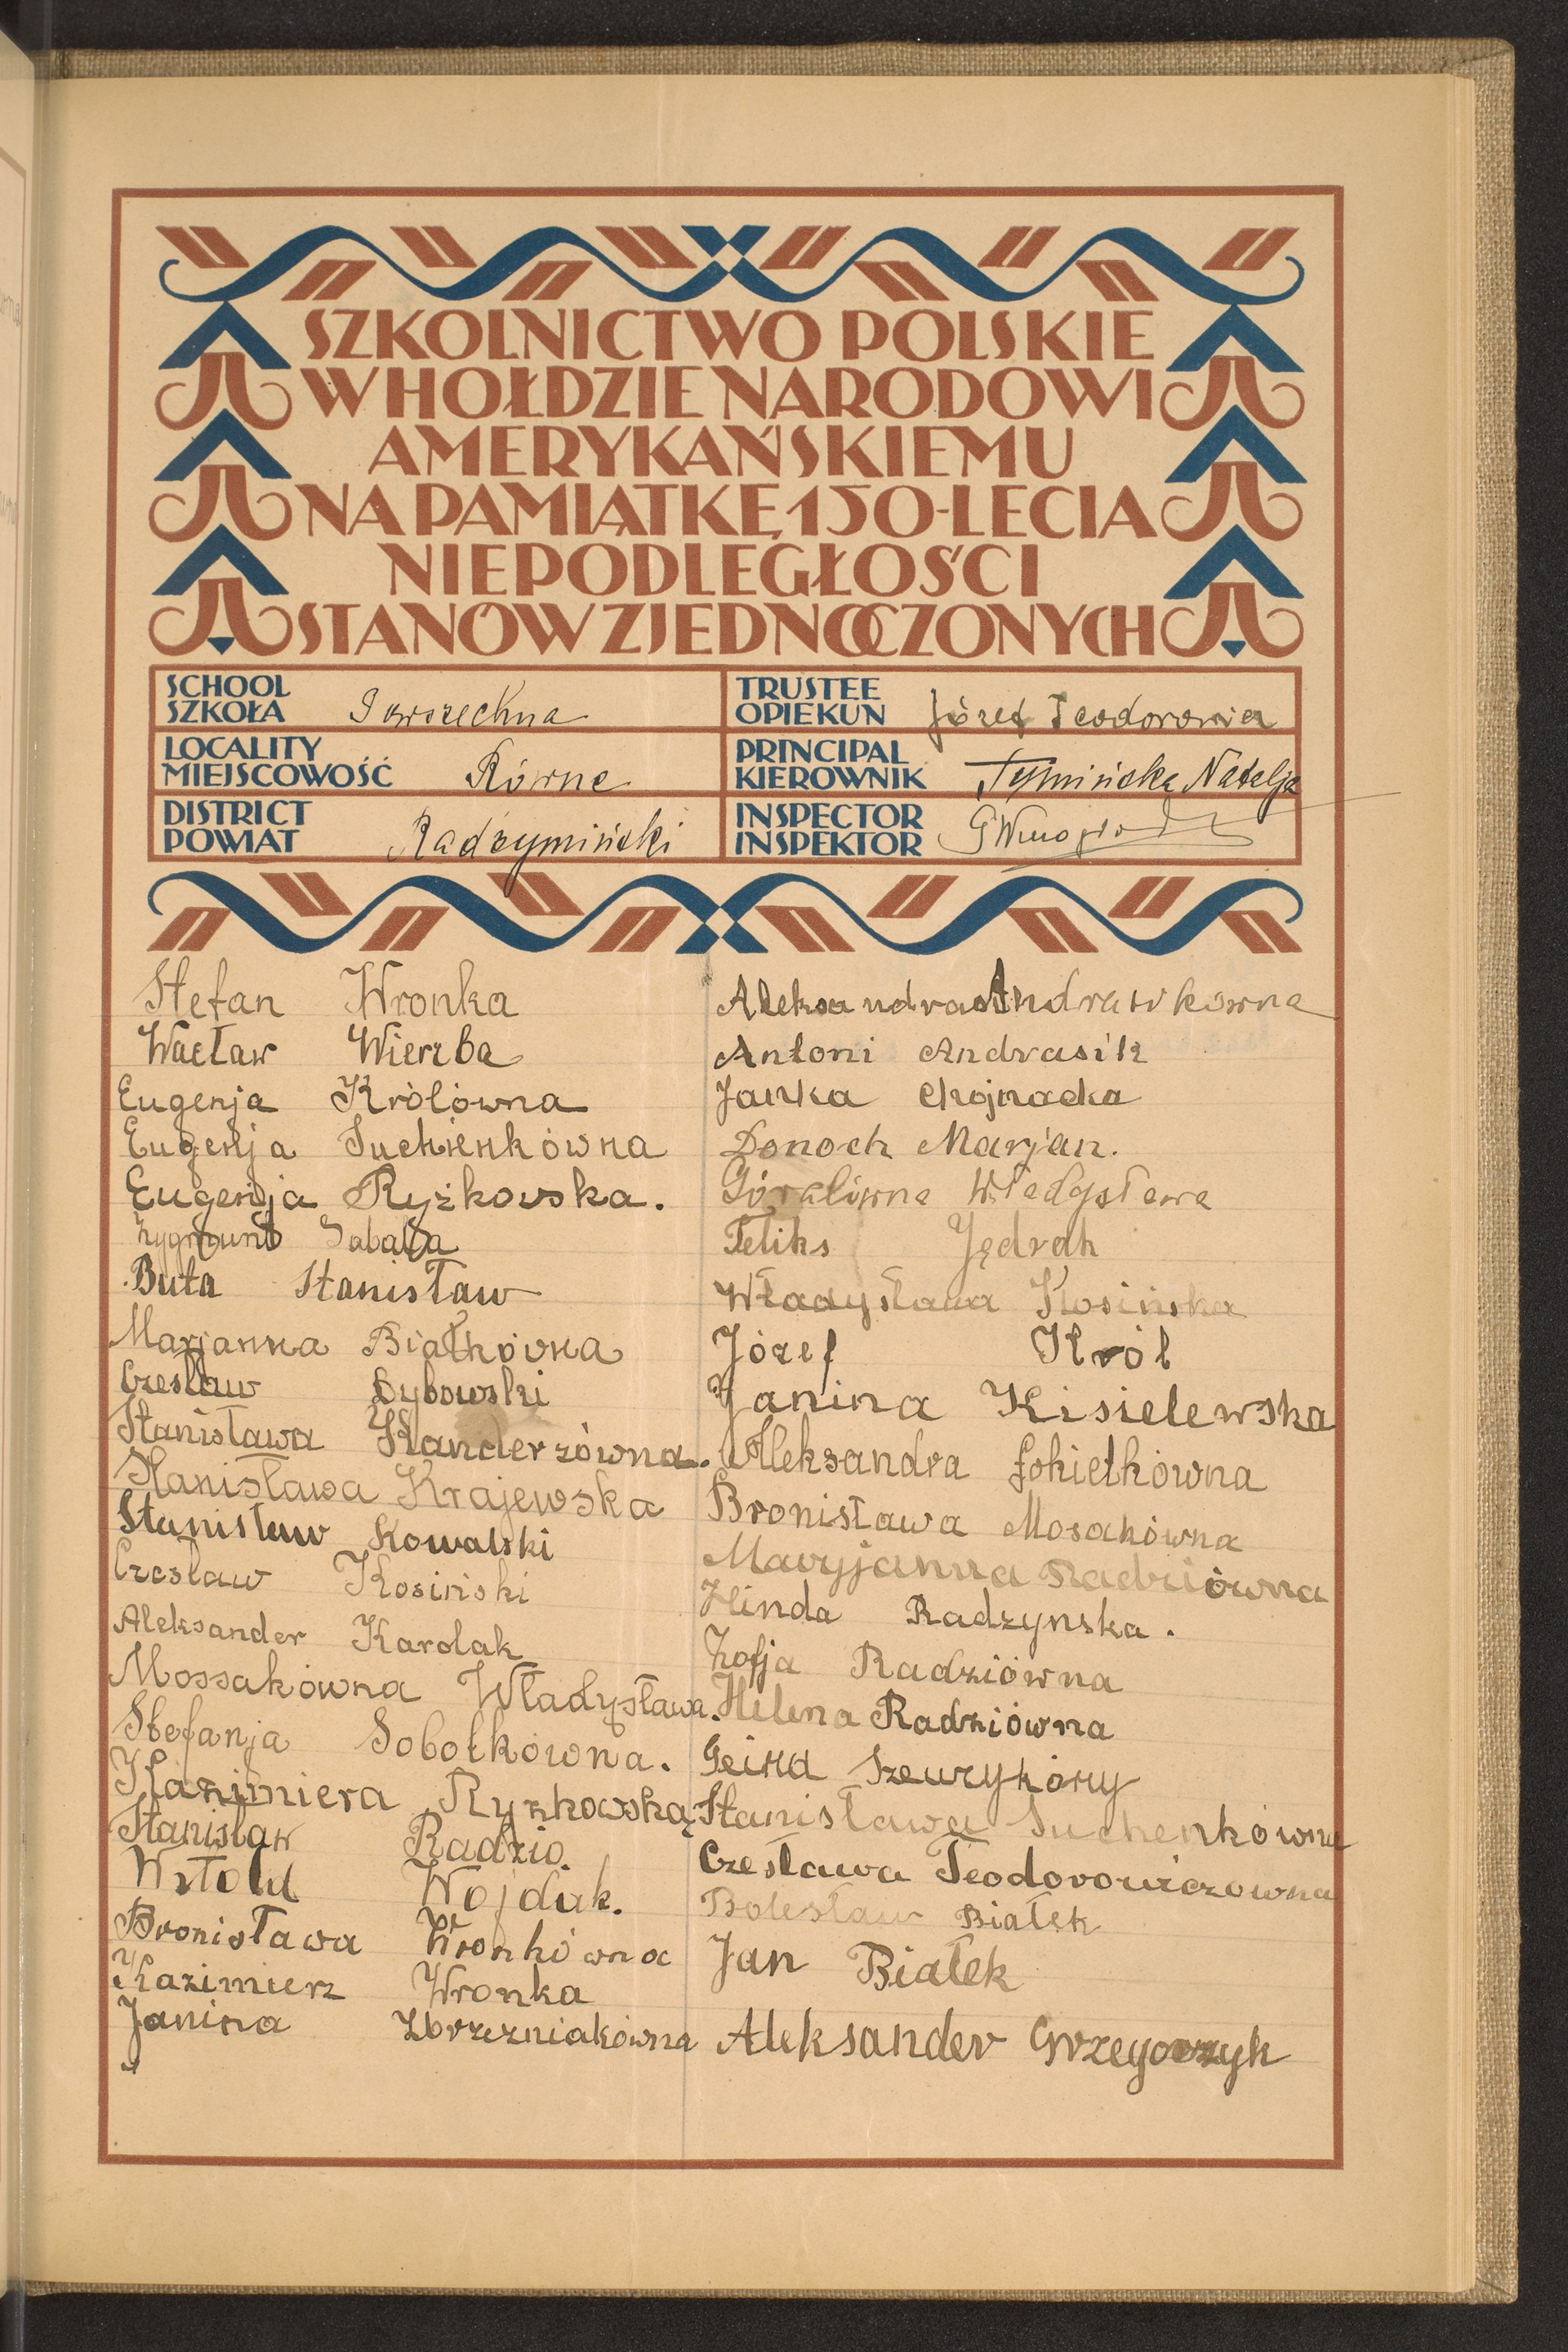 SZKOLNICTWO POLSKIE
W HOŁDZIE NARODOWI
AMERYKAŃSKIEMU
NA PAMIĄTKĘ 150-LECIA
NIEPODLEGŁOŚCI
STANÓW ZJEDNOCZONYCH
SCHOOL
SZKOŁA Powszechna
TRUSTEE
OPIEKUN Józef Teodorowicz
LOCALITY
MIEJSCOWOŚĆ Równe
PRINCIPAL
KIEROWNIK Tymińska Natalja
DISTRICT
POWIAT Radzymiński
INSPECTOR
INSPEKTOR
Stefan Wronka
Wacław Wierzba
Eugenja Królówna
Eugenja Suchenkówna
Eugenja Ryżkowska.
Zygmunt Sabała
Buta Stanisław
Marjanna Białkówna
Czesław Dybowski
Stanisława Kanderzówna.
Stanisława Krajewska
Stanisław Kowalski
Czesław Kosiński
Aleksander Karolak
Mossakówna Władysława.
Stefanja Sobotkówna.
Kazimiera Ryzkowska
Stanisław Radzio.
Witold Wojdak.
Bronisława Wronkówna
Kazimierz Wronka
Janina Zbrzezniakówna
Aleksandra
Antoni Andrasik
Janka Chojnacka
Donoch Marjan.
Góralówna Władysława
Feliks Jędrak
Władysława Kosińska
Józef Król
Janina Kisielewska
Aleksandra Łokietkówna
Bronisława Mosakówna
Maryjanna Radziówna
Hinda Radzynska.
Zofja Radziówna
Helena Radziówna
Stanisława Suchenkówna
Czesława Teodorowiczowna
Bolesław Białek
Jan Białek
Aleksander Grzegorzyk